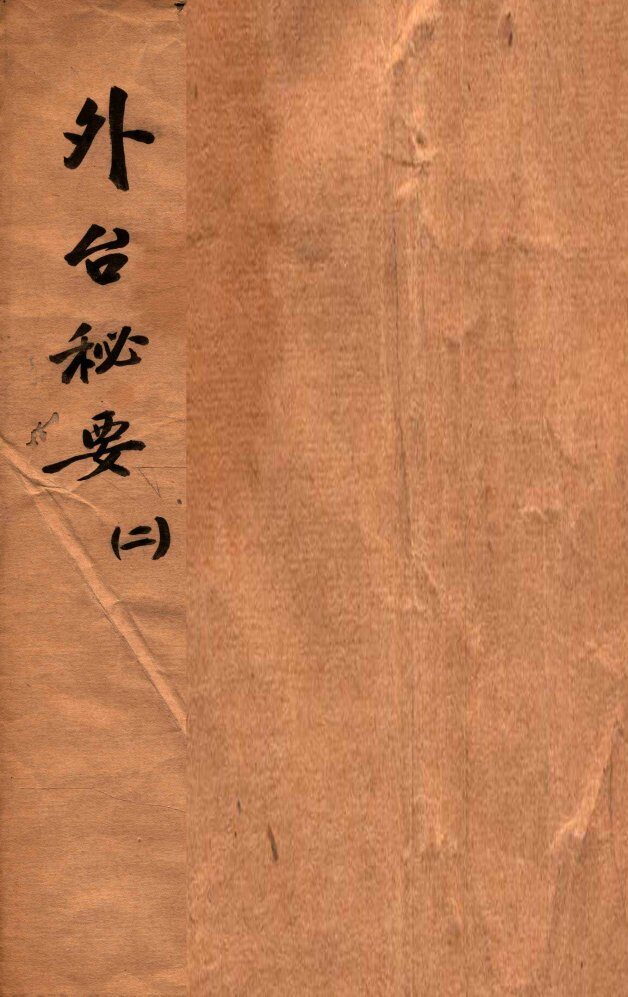 外台秘要
(二)